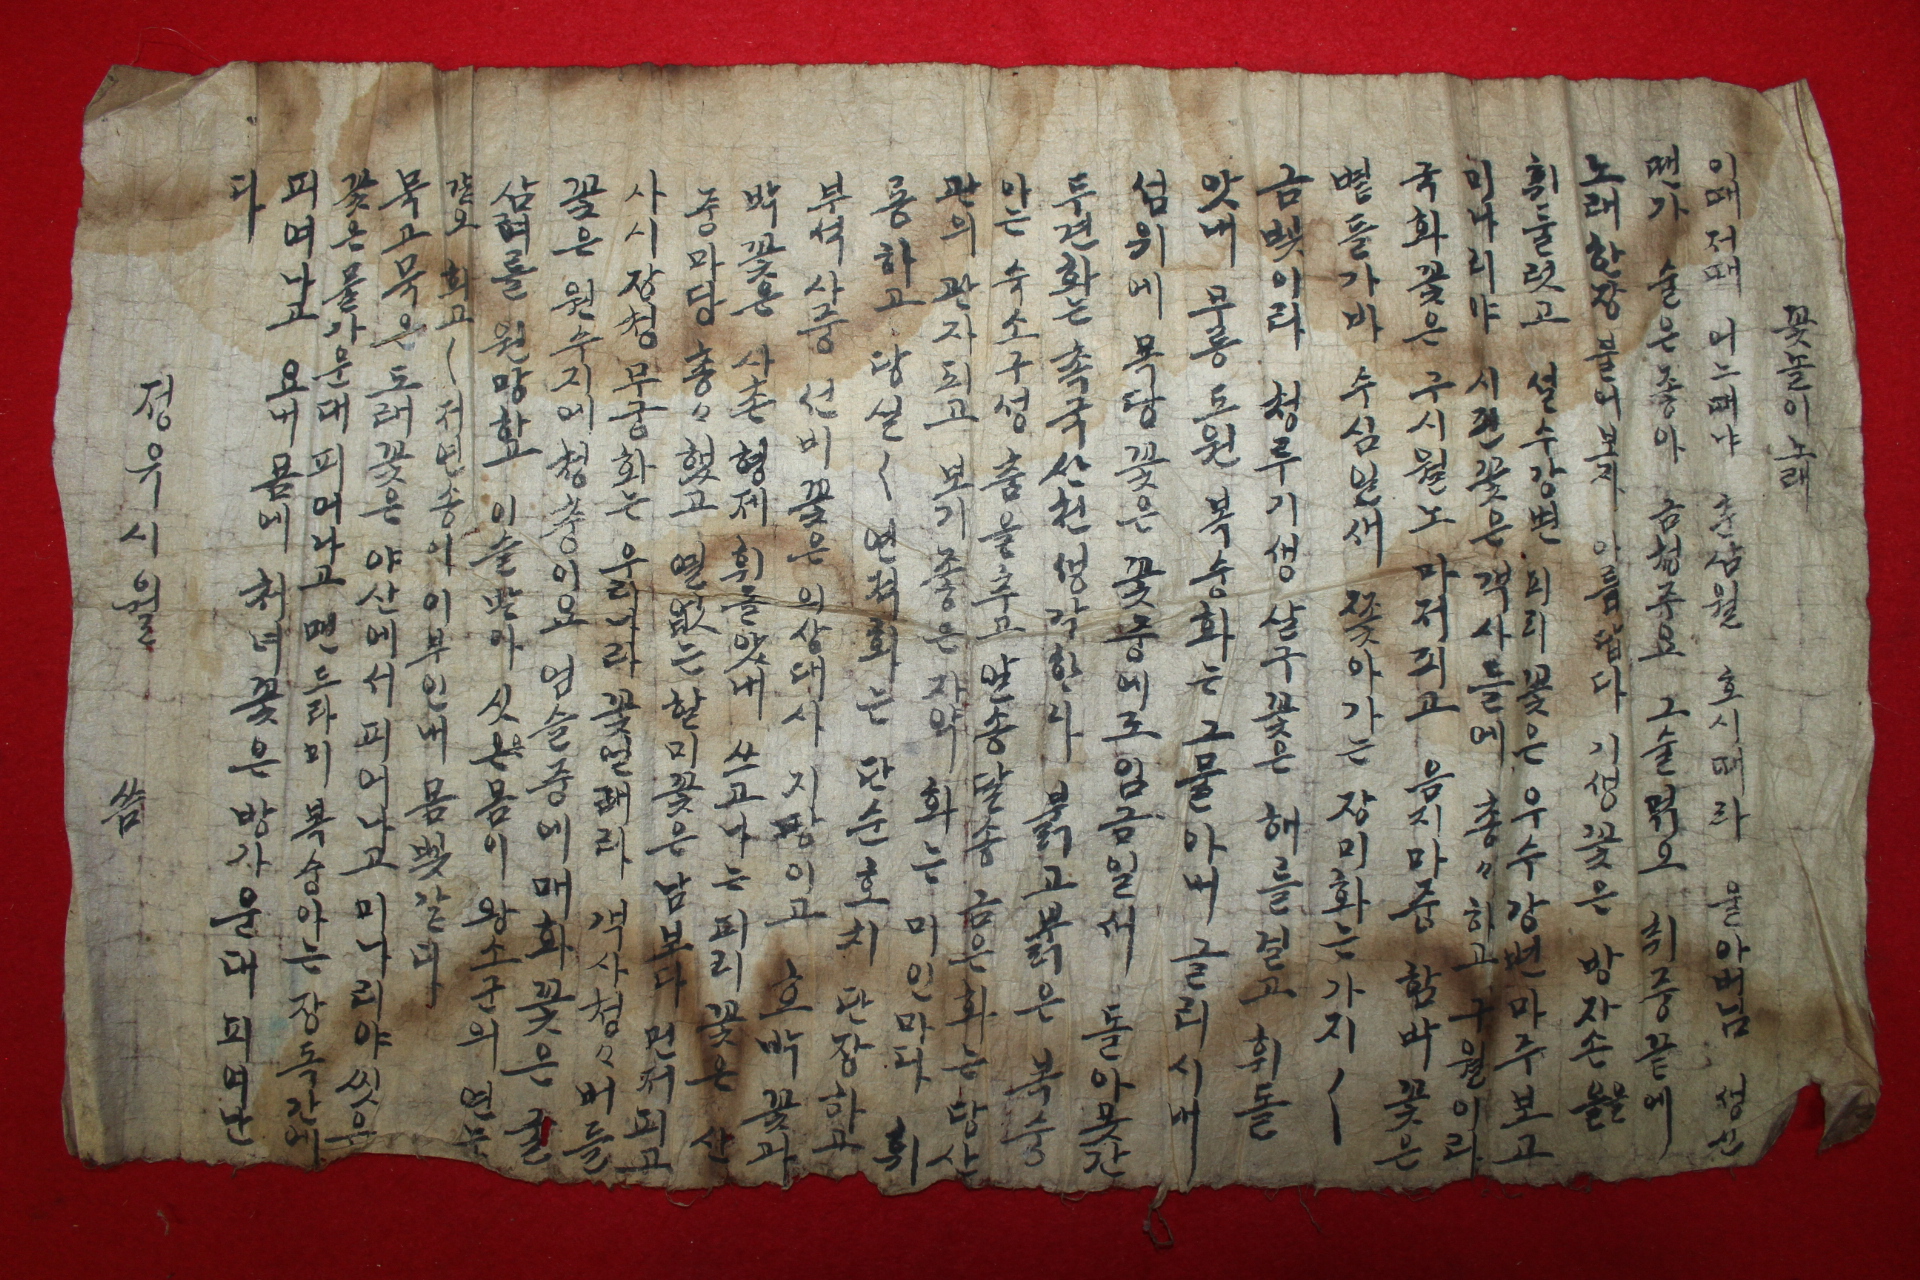 꽃놀이노래
이때저때 어느때야 춘삼월 호시때라 울아버님 생신
땐가 술은좋아 금청주요 그술먹고 취중끝에
노래한장 불러보자 아름답다 기생꽃은 방자손을
휘둘럿고 설수강변 피리꽃은 우수강변 마주보고
미나리야 시관꽃은 객사뜰에 총々하고 구월이라
국화꽃은 구시월노 마저피고 음지마중 함바꽃은
별들가바 수심일새 쫓아가는 장미화는 가지〱
금빛이라 청루기생 살구꽃은 해를걸고 휘돌
앗내 무릉도원 복숭화는 그물아버 글리시내
섬위에 목당꽃은 꽃중에도 임금일새 돌아못간
두견화는 촉국산천 생각한다 붉고붉은 복숭
아는 숙소구성 춤을추고 안송달송 금은화는 당산
관의 관자피고 보기좋은 자약화는 미인마다 휘
롱하고 당실〱 연적화는 단순호치 단장하고
부석사중 선비꽃은 의상대사 지팡이고 호박꽃과
박꽃은 사촌형제 휘돌앗내 쓰고나는 피리꽃은 산
중마당 총々했고 열없는 할미꽃은 남보다 먼저피고
사시장청 무궁화는 우리나라 꽃일래라 객사청々 버들
꽃은 원수지에 청춘이요 엄슬중에 매화꽃은 굴
삼려를 원망하고 이슬맞아 싯은몸이 왕소군의 연두
갈고 희고〱 저면송이 이부인내 몸빛갈다
묵고묵은 도래꽃은 야산에서 피어나고 미나리야 씻은
꽃은 물가운대 피어나고 맨드라미 복숭아는 장독간에
피여나고 요내몸에 처녀꽃은 방가운대 피여난
다
정유시월 씀